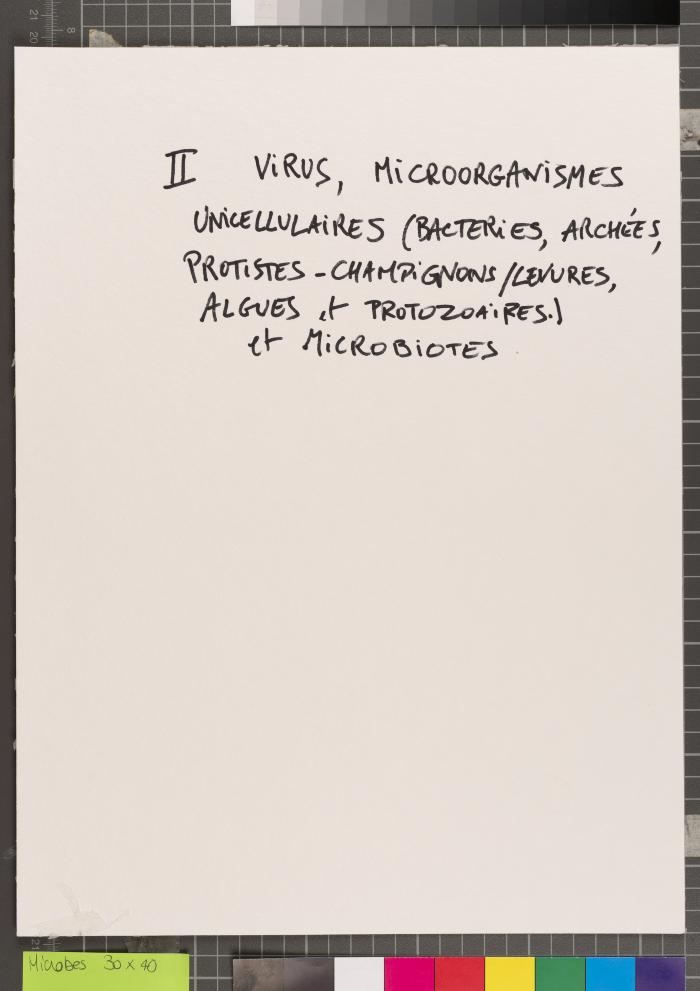 II VIRUS, MICROORGANISMES
UNICELLULAIRES (BACTERIES, ARCHÉES,
PROTISTES - CHAMPIGNONS/LEVURES,
ALGUES et PROTOZOAIRES.)
et MICROBIOTES
Microbes 30 x 40